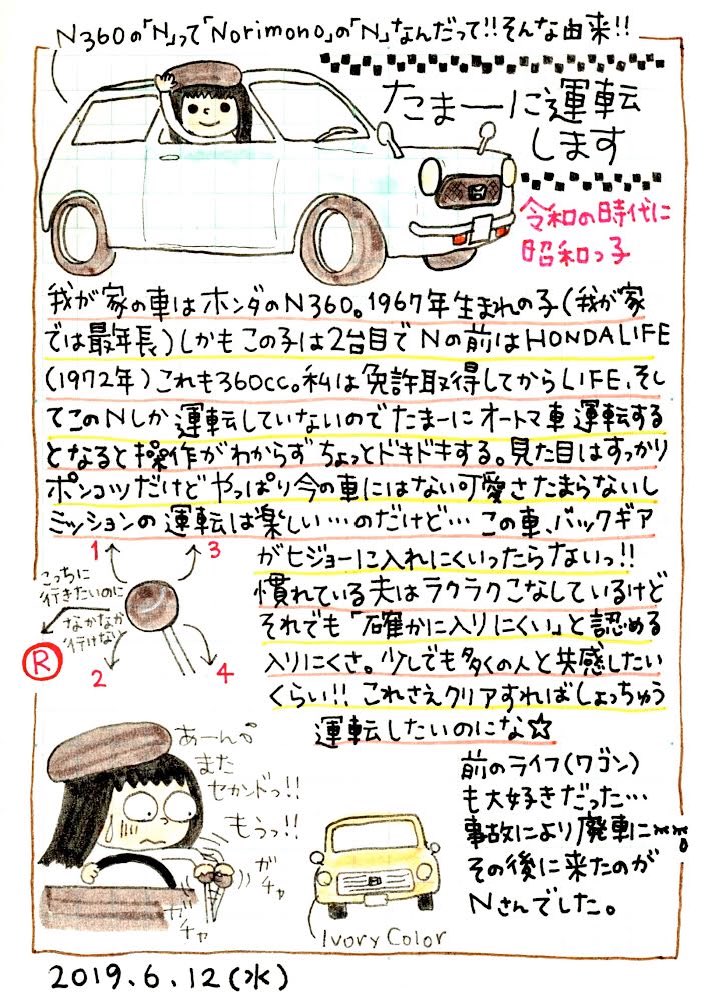 N360の「N」って「Norimono」の「N」なんだって!!そんな由来!!
たまーに運転
します
令和の時代に
昭和っ子
我が家の車はホンダのN360。1967年生まれの子(我が家
では最年長)しかもこの子は2台目でNの前はHONDA LIFE
(1972年)これも360cc。私は免許取得してからLIFE、そし
てこのNしか運転していないのでたまーにオートマ車運転する
となると操作がわからずちょっとドキドキする。見た目はすっかり
ポンコツだけどやっぱり今の車にはない可愛さたまらないし
ミッションの運転は楽しい…のだけど…この車、バックギア
がヒジョーに入れにくいったらないっ!!
慣れている夫はラクラクこなしているけど
それでも「確かに入りにくい」と認める
入りにくさ。少しでも多くの人と共感したい
くらい!!これさえクリアすればしょっちゅう
運転したいのにな☆
1
3
こっちに
行きたいのに
なかなか
行けない
R
2
4
あーん
また
セカンドっ!!
もうっ!!
ガチャ
ガチャ
Ivory Color
前のライフ(ワゴン)
も大好きだった…
事故により廃車に
その後に来たのが
Nさんでした。
2019.6.12(水)